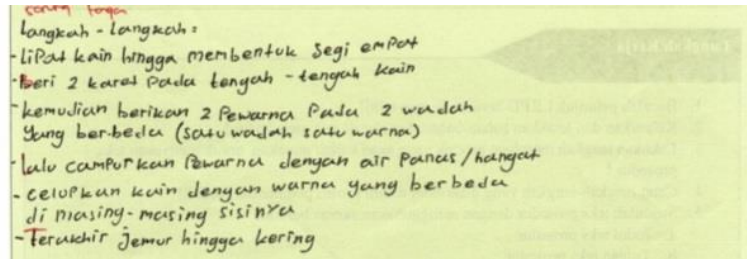 sarung tangan
Langkah - Langkah :
- Lipat kain hingga membentuk segi empat
- Beri 2 karet pada tengah - tengah kain
- kemudian berikan 2 Pewarna Pada 2 wadah
yang berbeda (satu wadah satu warna)
- Lalu campurkan Pewarna dengan air Panas/hangat
- celupkan kain dengan warna yang berbeda
di masing-masing sisinya
- Terakhir jemur hingga kering